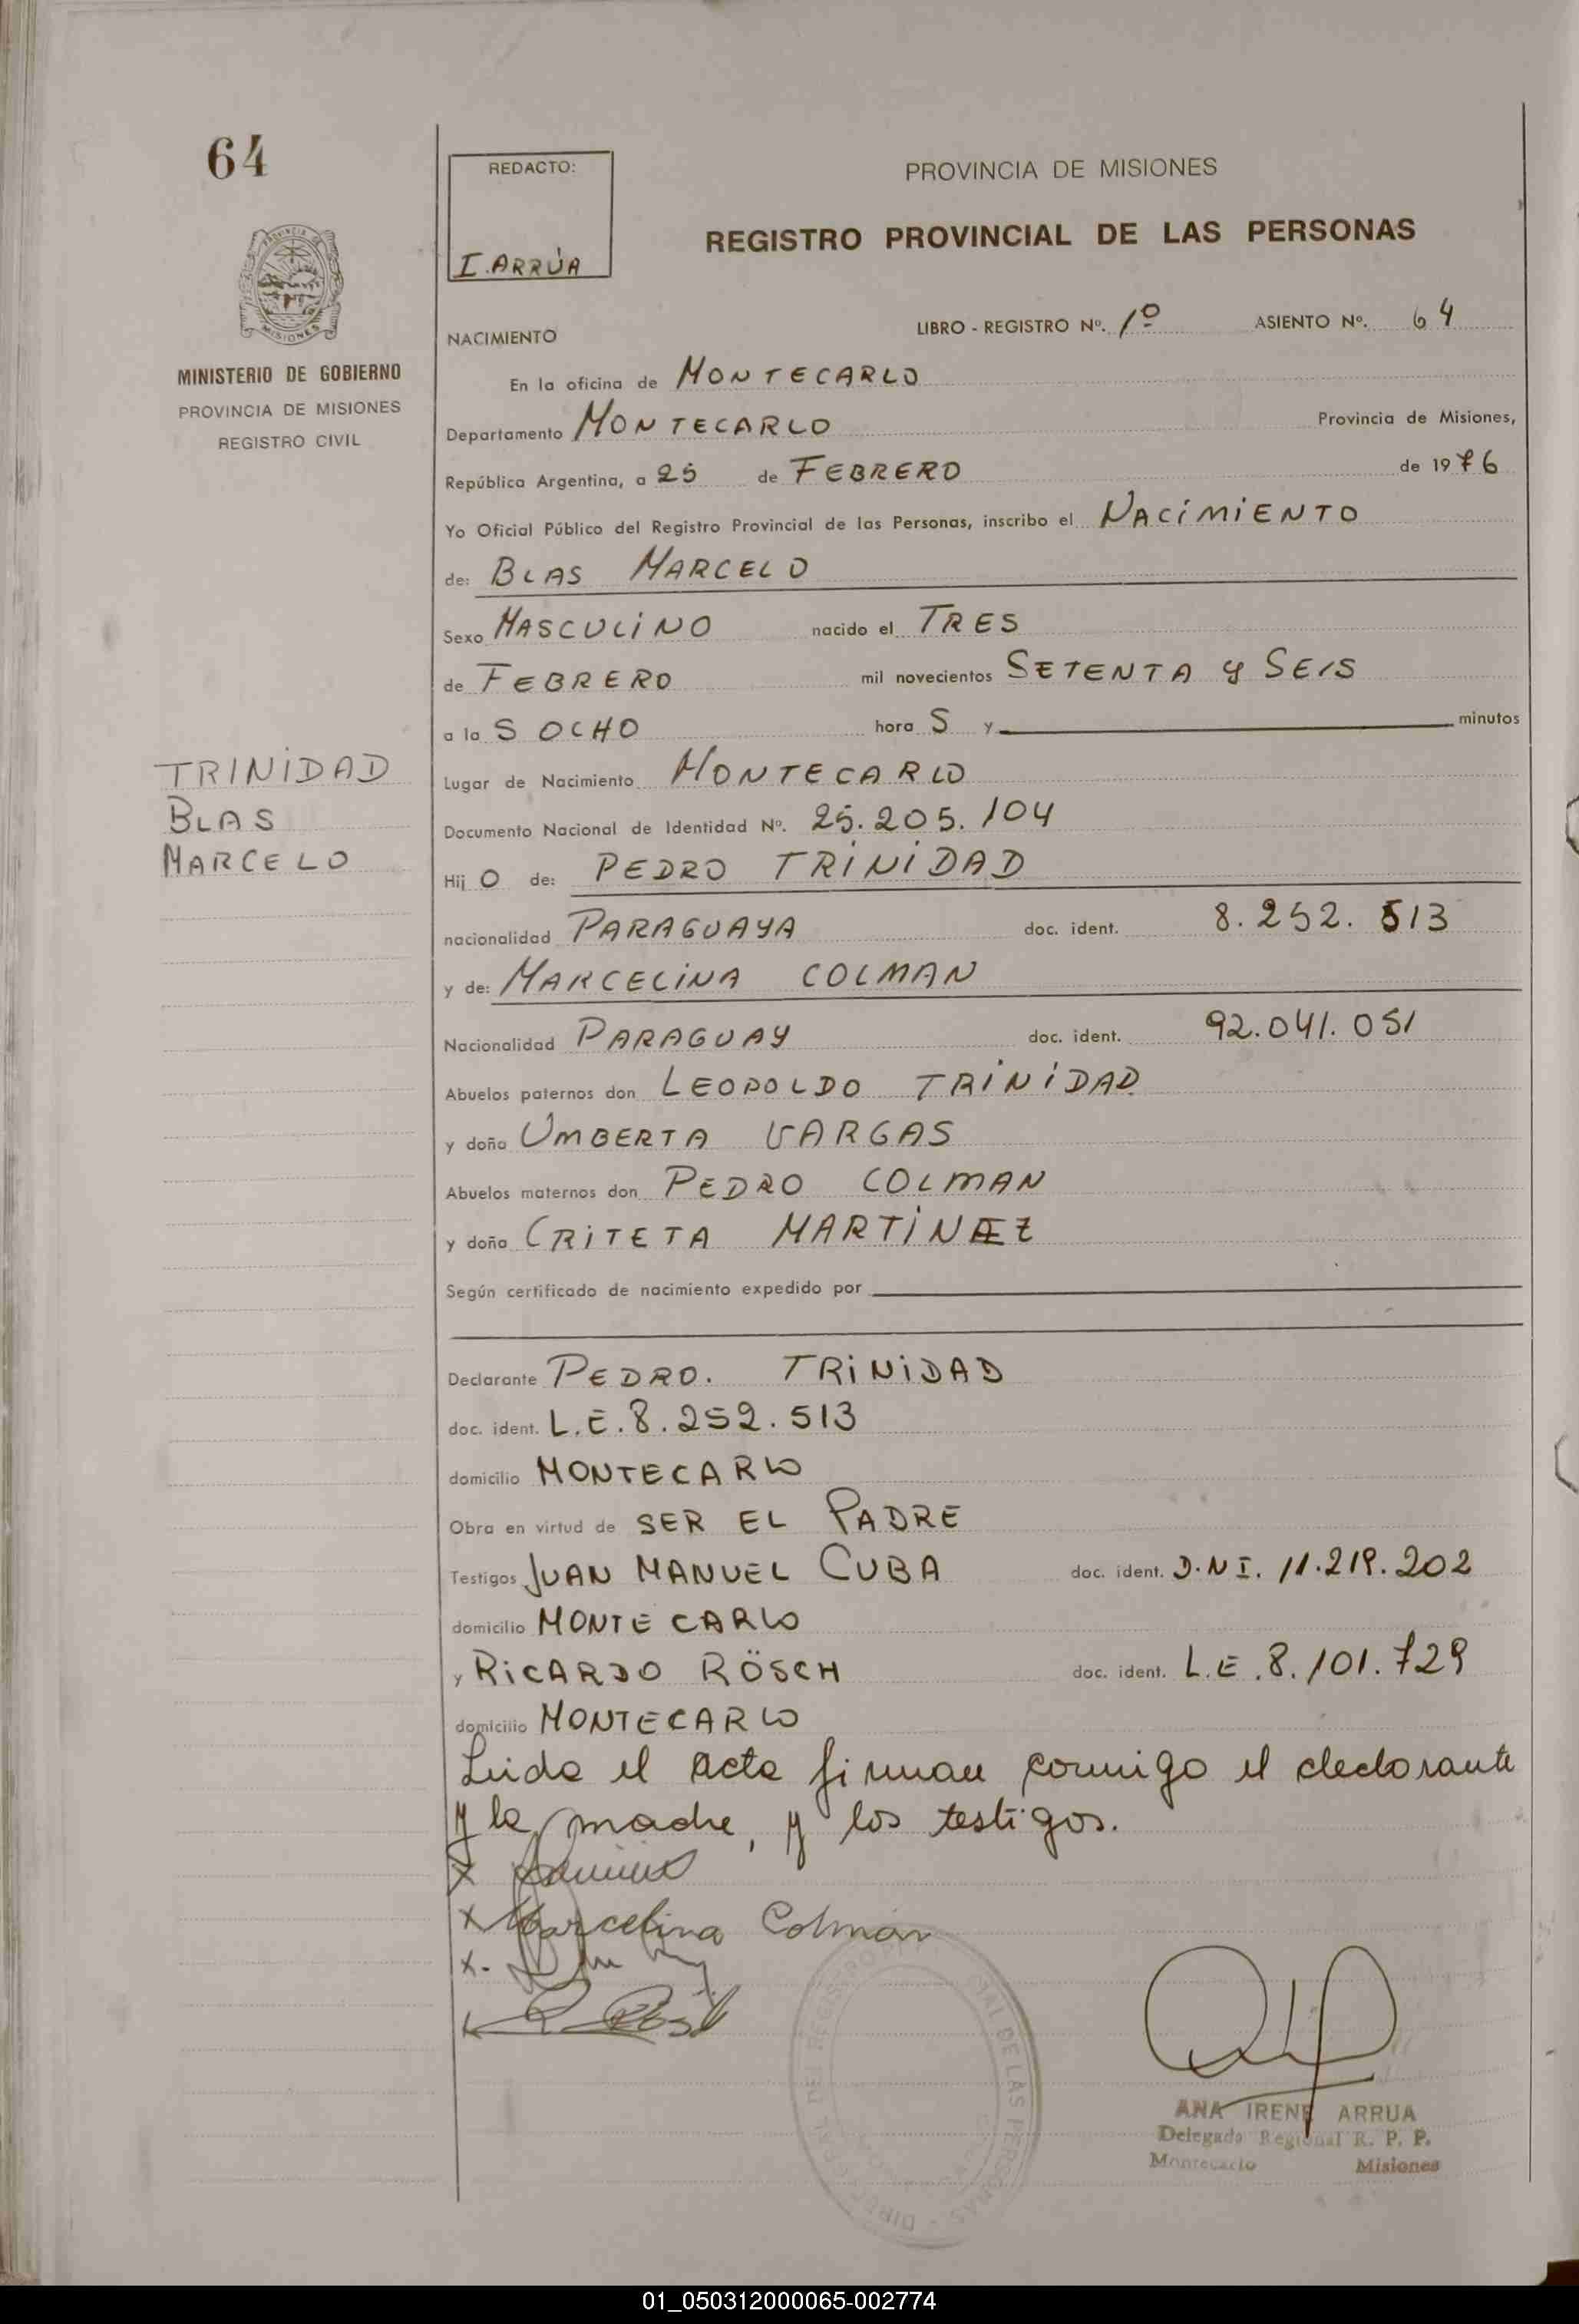 64
REDACTO:
I. ARRÚA
PROVINCIA DE MISIONES
REGISTRO PROVINCIAL DE LAS PERSONAS
MISIONES
MINISTERIO DE GOBIERNO
PROVINCIA DE MISIONES
REGISTRO CIVIL
NACIMIENTO LIBRO - REGISTRO Nº. 1º ASIENTO Nº. 64
En la oficina de MONTECARLO
Departamento MONTECARLO Provincia de Misiones,
República Argentina, a 25 de FEBRERO de 1976
Yo Oficial Público del Registro Provincial de las Personas, inscribo el NACIMIENTO
de: BLAS MARCELO
Sexo MASCULINO nacido el TRES
de FEBRERO mil novecientos SETENTA Y SEIS
a la S OCHO hora S y minutos
TRINIDAD
BLAS
MARCELO
Lugar de Nacimiento MONTECARLO
Documento Nacional de Identidad Nº. 25.205.104
Hij O de: PEDRO TRINIDAD
nacionalidad PARAGUAYA doc. ident. 8.252.513
y de: MARCELINA COLMAN
Nacionalidad PARAGUAY doc. ident. 92.041.051
Abuelos paternos don LEOPOLDO TRINIDAD
y doña UMBERTA VARGAS
Abuelos maternos don PEDRO COLMAN
y doña CRITETA MARTINEZ
Según certificado de nacimiento expedido por
Declarante PEDRO. TRINIDAD
doc. ident. L.E. 8.252.513
domicilio MONTECARLO
Obra en virtud de SER EL PADRE
Testigos JUAN MANUEL CUBA doc. ident. D.N I. 11.219.202
domicilio MONTE CARLO
y RICARDO RÖSCH doc. ident. L.E. 8.101.729
domicilio MONTECARLO
Leida el acta firman conmigo el declarante
y la madre, y los testigos.
x
x Marcelina Colmán
x.
ANA IRENE ARRUA
Delegada Regional R. P. P.
Montecarlo Misiones
01_050312000065-002774